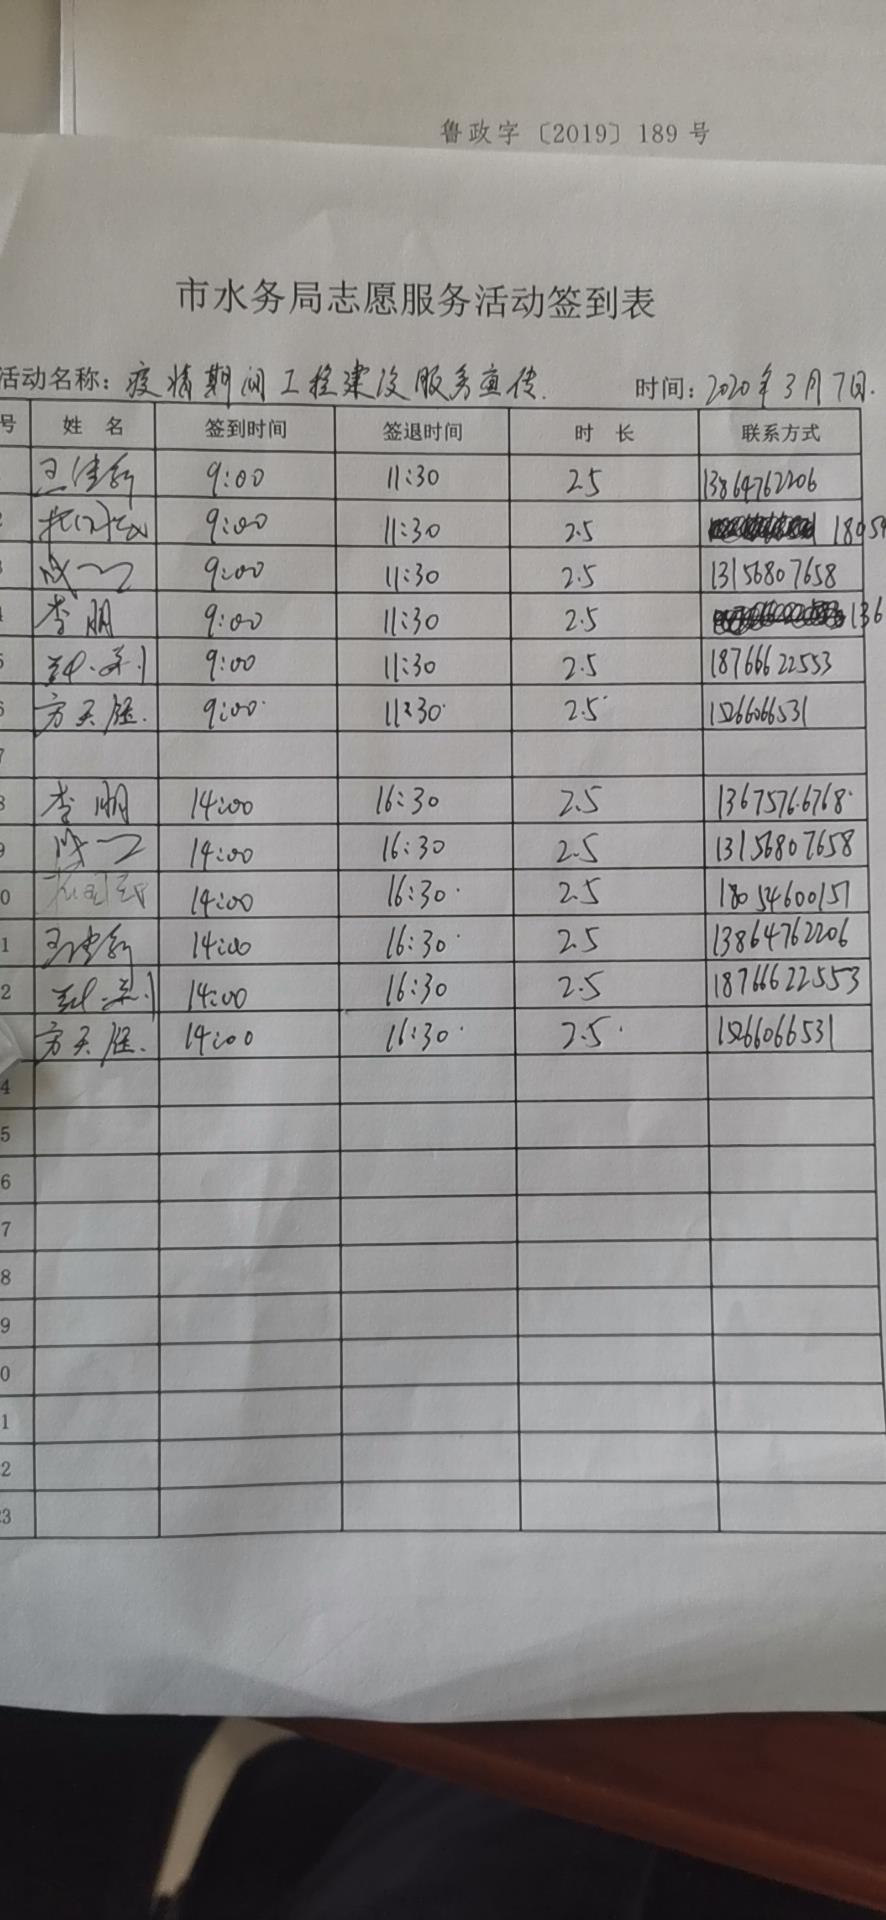 鲁政字〔2019〕189号
市水务局志愿服务活动签到表
活动名称：疫情期间工程建设服务宣传. 时间：2020年3月7日.
号 姓 名 签到时间 签退时间 时 长 联系方式
9:00 11:30 2.5 13864762206
2 9:00 11:30 2.5 18054
3 9:00 11:30 2.5 13156807658
4 李明 9:00 11:30 2.5 136
5 9:00 11:30 2.5 18766622553
6 方天 9:00 11:30 2.5 15266066531
7
8 李明 14:00 16:30 2.5 13675766768
9 14:00 16:30 2.5 13156807658
0 14:00 16:30 2.5 18054600151
1 14:00 16:30 2.5 13864762206
2 14:00 16:30 2.5 18766622553
方天 14:00 16:30 2.5 15266066531
4
5
6
7
8
9
0
1
2
23